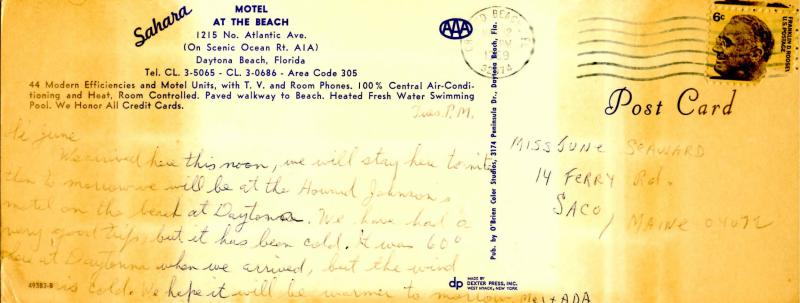 Sahara
MOTEL
AT THE BEACH
1215 No. Atlantic Ave.
(On Scenic Ocean Rt. A1A)
Daytona Beach, Florida
Tel. CL. 3-5065 - CL. 3-0686 - Area Code 305
44 Modern Efficiencies and Motel Units, with T. V. and Room Phones. 100% Central Air-Condi-
tioning and Heat, Room Controlled. Paved walkway to Beach. Heated Fresh Water Swimming
Pool. We Honor All Credit Cards.
Tues. P.M.
Hi June
We arrived here this noon, we will stay here to nite
then to morrow we will be at the Howard Johnson's
motel on the beach at Daytona. We have had a
very good trip, but it has been cold. It was 60°
at Daytonna when we arrived, but the wind
cold. We hope it will be warmer to morrow. Mel & ADA
49383-B
AAA
Pub. by O'Brien Color Studios, 3174 Peninsula Dr., Daytona Beach, Fla.
dp
MADE BY
DEXTER PRESS, INC.
WEST NYACK, NEW YORK
BEACH, FL
PM
6¢
FRANKLIN D. ROOSEVELT
U.S. POSTAGE
Post Card
MISS JUNE SEAWARD
14 FERRY Rd.
SACO, MAINE 04072